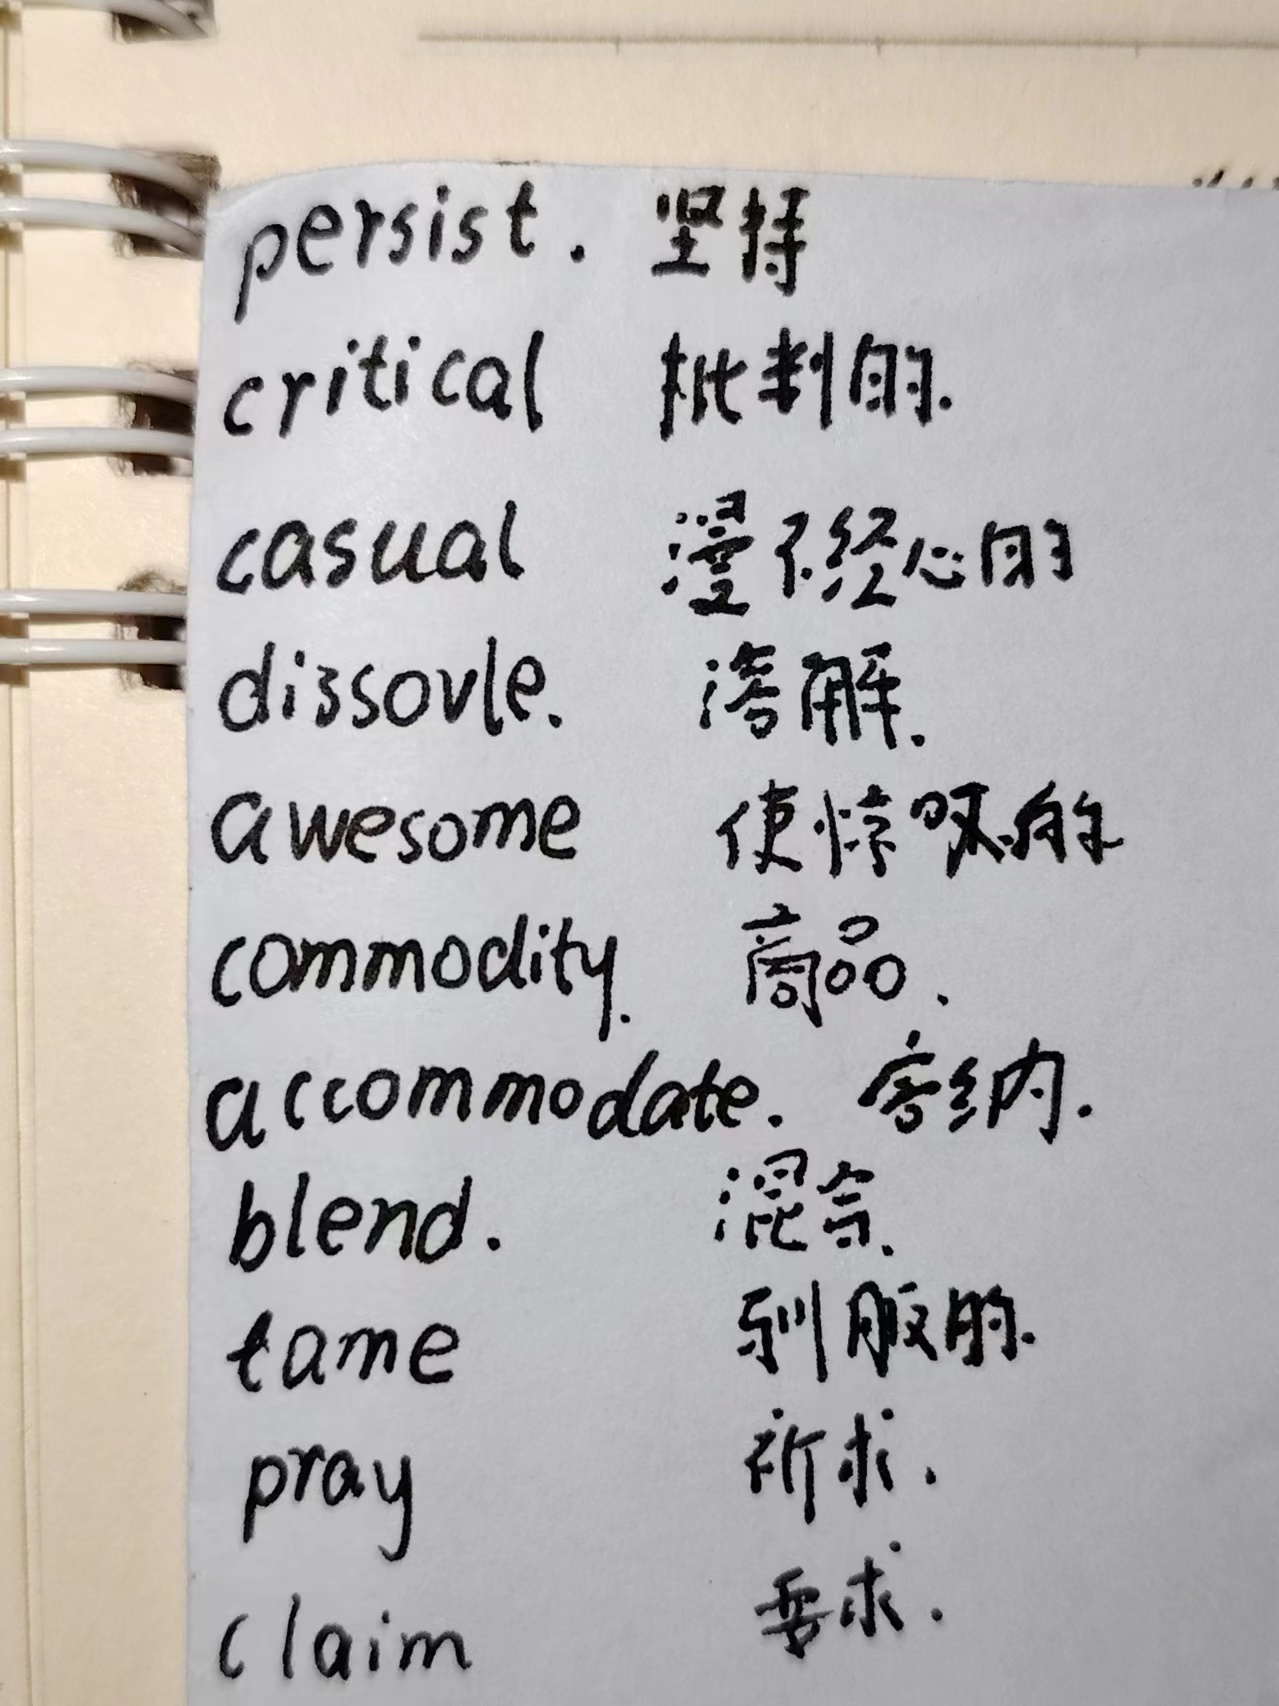 persist. 坚持
critical 批判的.
casual 漫不经心的
dissovle. 溶解.
awesome 使惊叹的
commodity. 商品.
accommodate. 容纳.
blend. 混合.
tame 驯服的.
pray 祈求.
claim 要求.